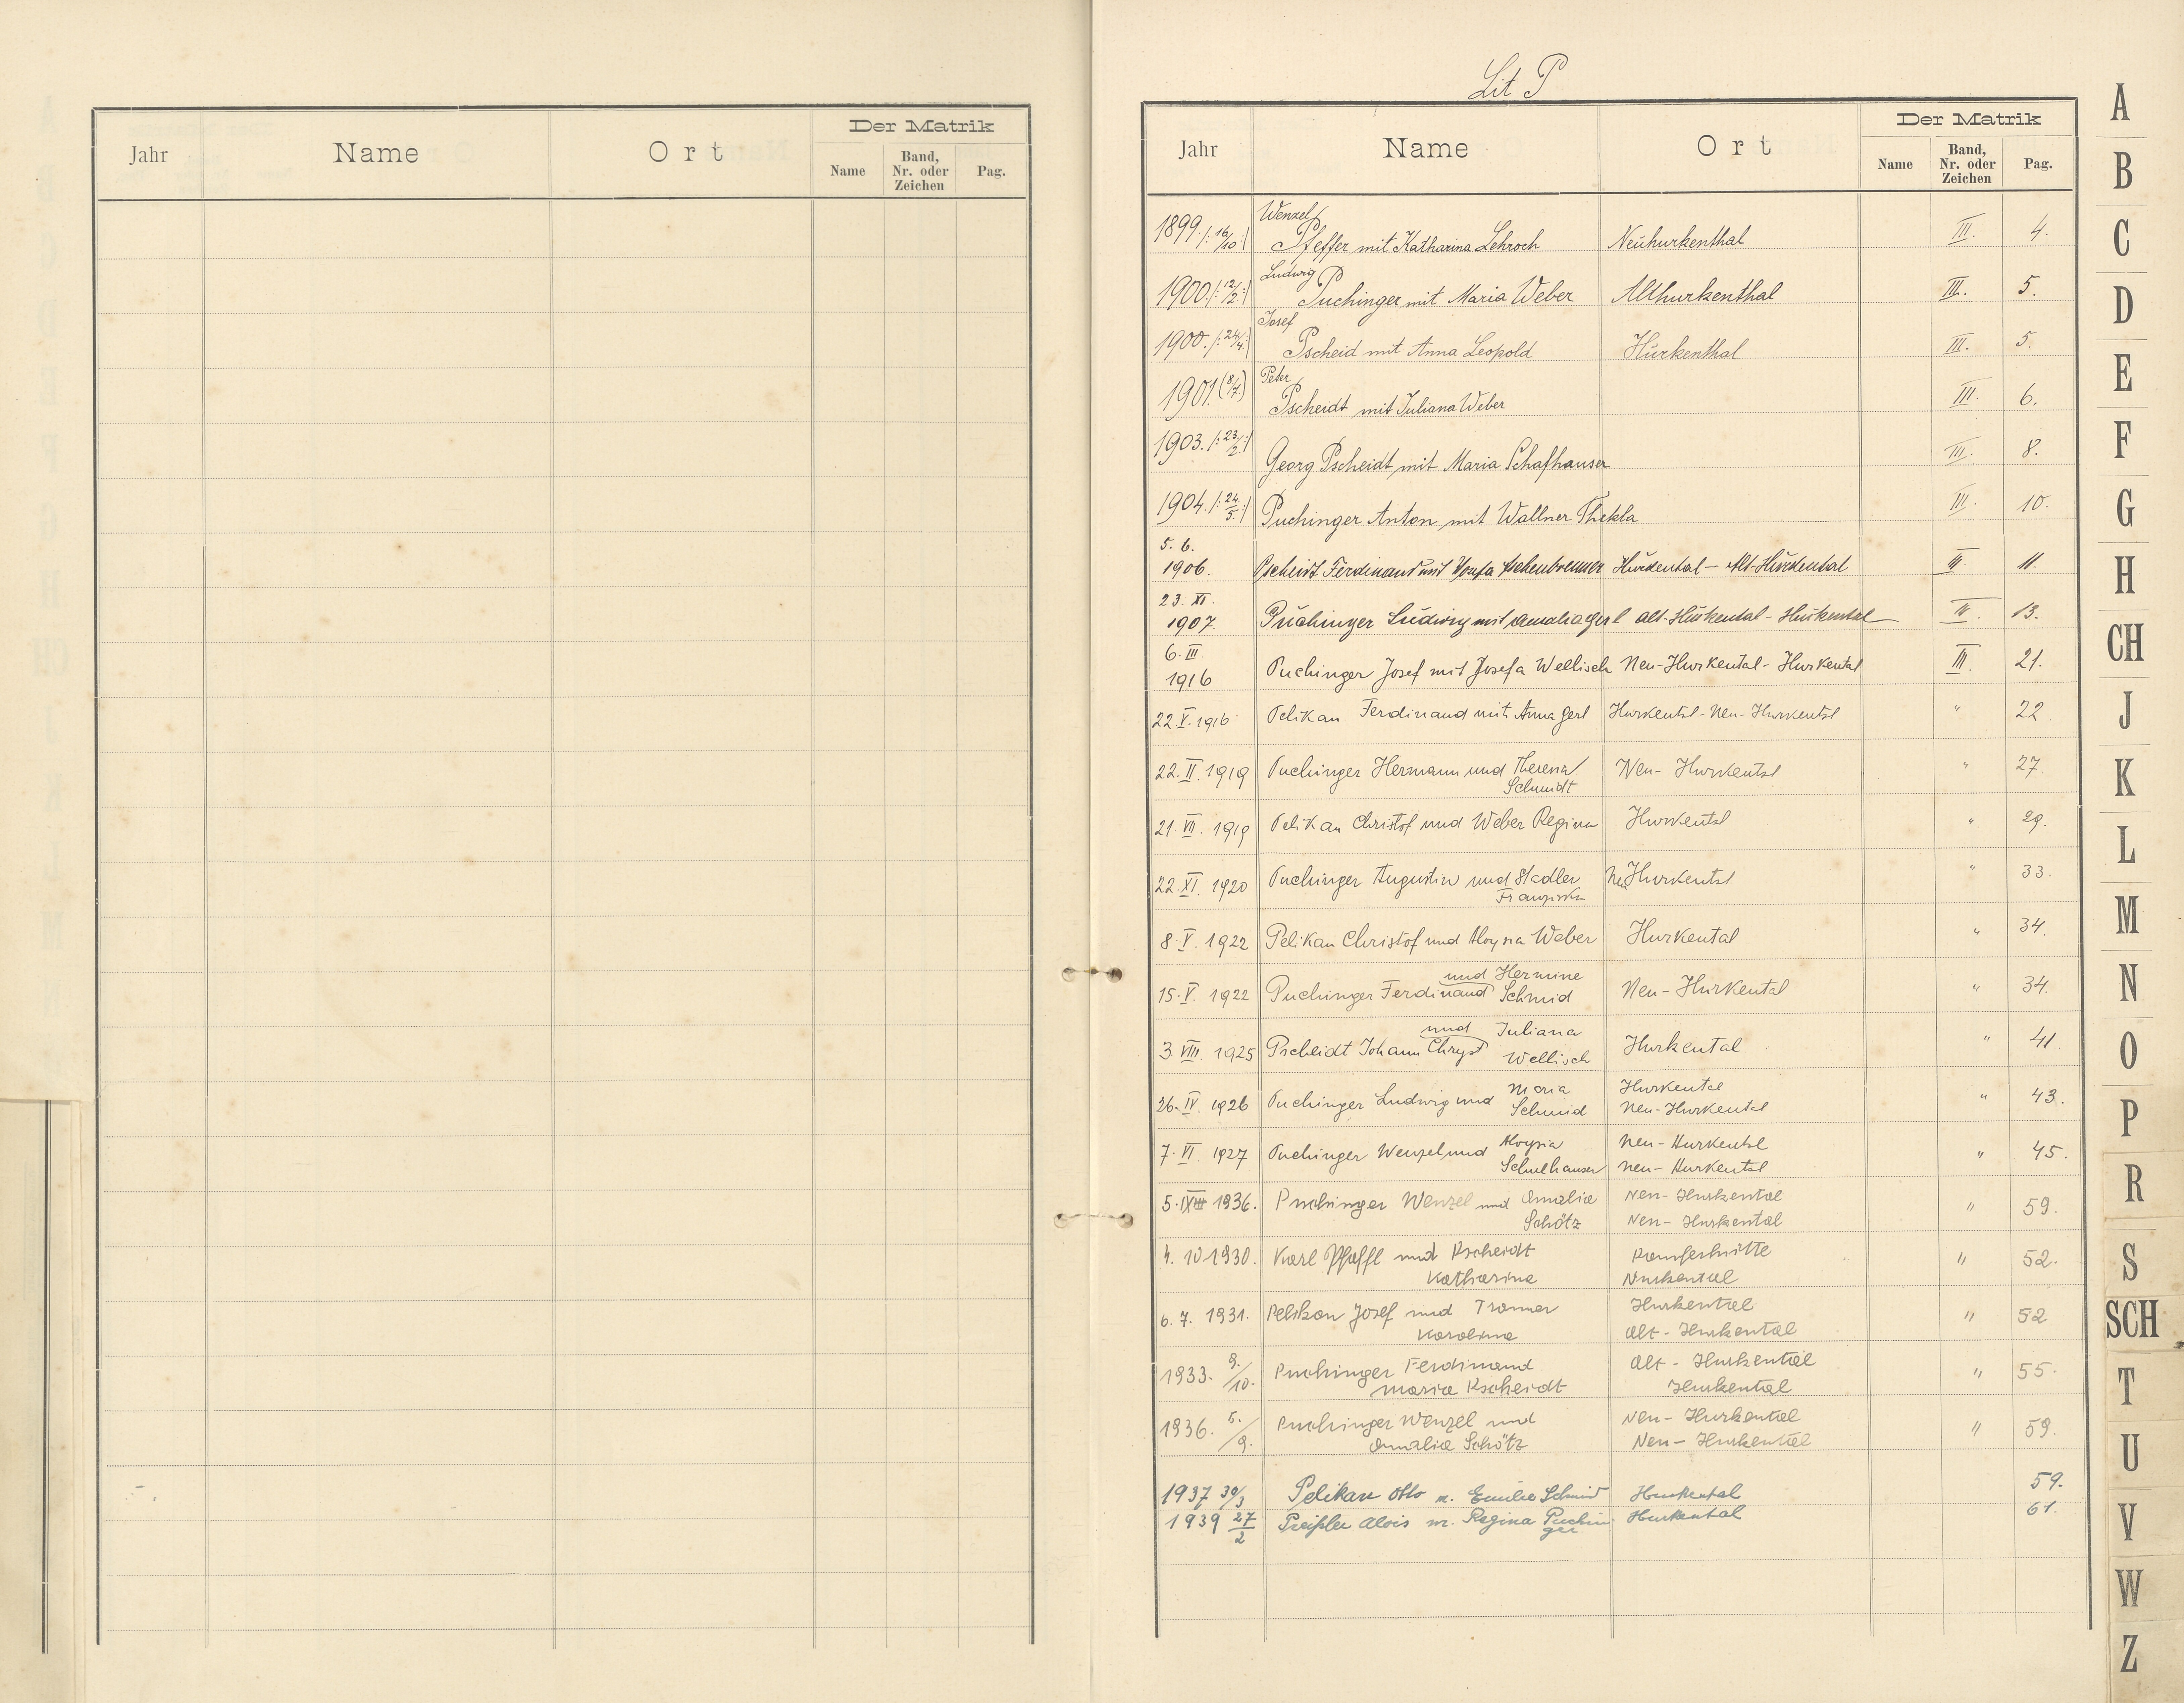 Jahr Name Ort Der Matrik
Name Band, Nr. oder Zeichen Pag.
Lit P
Jahr Name Ort Der Matrik
Name Band, Nr. oder Zeichen Pag.
Wenzel
1899. /: 16/10 :/ Pfeffer mit Katharina Lehroch Neuhurkenthal III. 4.
Ludwig
1900. /: 12/2 :/ Puchinger mit Maria Weber Althurkenthal III. 5.
Josef
1900. /: 24/4 :/ Pscheid mit Anna Leopold Hurkenthal III. 5.
Peter
1901. (8/7) Pscheidt mit Juliana Weber III. 6.
1903. /: 23/2 :/ Georg Pscheidt mit Maria Schafhauser III. 8.
1904. /: 24/5. :/ Puchinger Anton mit Wallner Thekla III. 10.
5. 6.
1906. Pscheidt Ferdinand mit Josefa Aschenbrenner Hurkental - Alt-Hurkental III. 11.
23. XI.
1907. Puchinger Ludwig mit Amalia Gerl Alt-Hurkental - Hurkental 13.
6. III.
1916 Puchinger Josef mit Josefa Wellisch Neu-Hurkental - Hurkental III. 21.
22. V. 1916 Pelikan Ferdinand mit Anna Gerl Hurkental - Neu-Hurkental " 22.
22. II. 1919 Puchinger Hermann und Theresia Neu-Hurkental " 27.
Schmidt
21. VII. 1919 Pelikan Christof und Weber Regina Hurkental " 29.
22. XI. 1920 Puchinger Augustin und Stadler Neu Hurkental " 33.
Franziska
8. V. 1922 Pelikan Christof und Aloysia Weber Hurkental " 34.
und Hermine
15. V. 1922 Puchinger Ferdinand Schmid Neu-Hurkental " 34.
und Juliana
3. VIII. 1925 Pscheidt Johann Chryst Wellisch Hurkental " 41.
Maria Hurkental
26. IV. 1926 Puchinger Ludwig und Schmid Neu-Hurkental " 43.
Aloysia Neu-Hurkental
7. VI. 1927 Puchinger Wenzel und Neu-Hurkental " 45.
5. IX 1936. Puchinger Wenzel und Amalia Neu-Hurkental " 59.
Schötz Neu-Hurkental
4. 10 1930. Karl Pfaffl und Pscheidt " 52.
Katharina Hurkental
6. 7. 1931. Pelikan Josef und Hurkental " 52
Karolina Alt-Hurkental
1933. 9./10. Puchinger Ferdinand Alt-Hurkental " 55.
Maria Pscheidt Hurkental
1936. 5./9. Puchinger Wenzel und Neu-Hurkental " 59.
Amalia Schötz Neu-Hurkental
1937 30/3 Pelikan Otto m. Emilie Schmid Hurkental 59.
1939 27/2 Preißler Alois m. Regina Puchin Hurkental 61.
ger
A
B
C
D
E
F
G
H
CH
J
K
L
M
N
O
P
R
S
SCH
T
U
V
W
Z